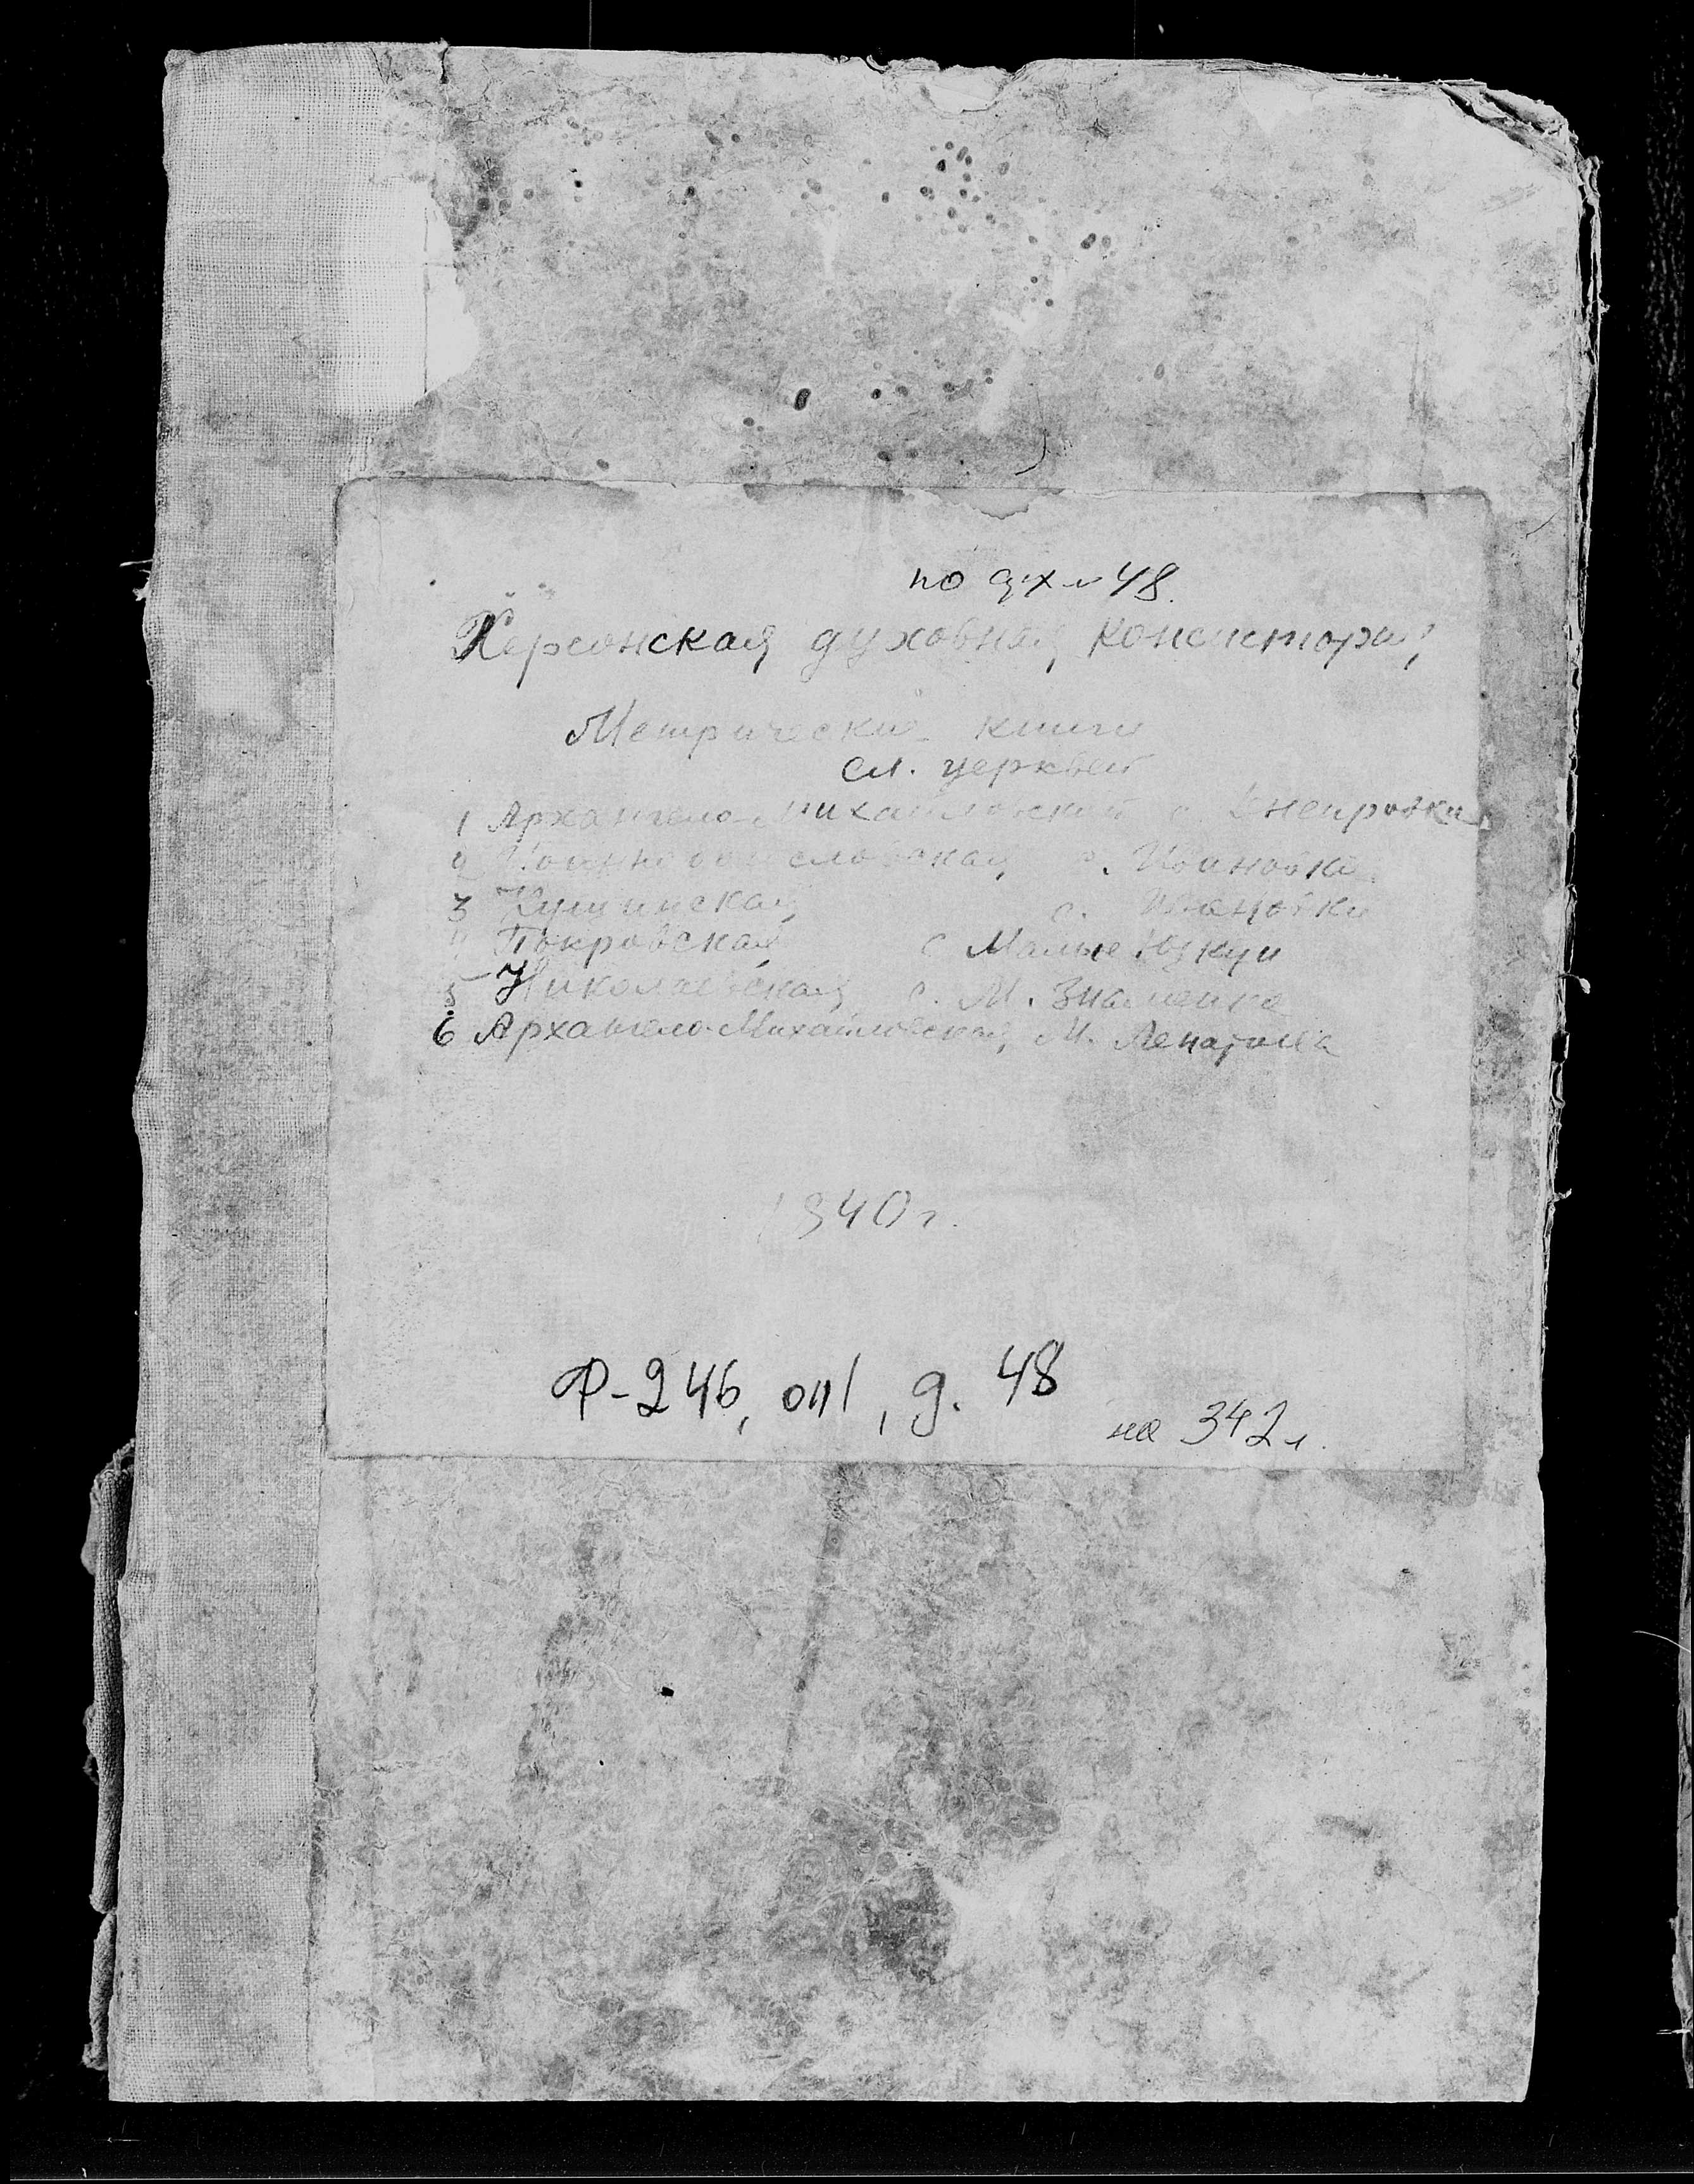 по
48.
Херсонская духовная консистория
Метрические книги
сл. церквей
1 Архангело-Михайловский с. Днепровка
2 Иоанно богословская с. Ивановка
3 с. Ивановки
4 Покровская с Малые
5 Николаевская с. М. Знаменка
6 Архангело-Михайловская, М.
1840 г.
Ф-246, оп1, д. 48
на 342 л.